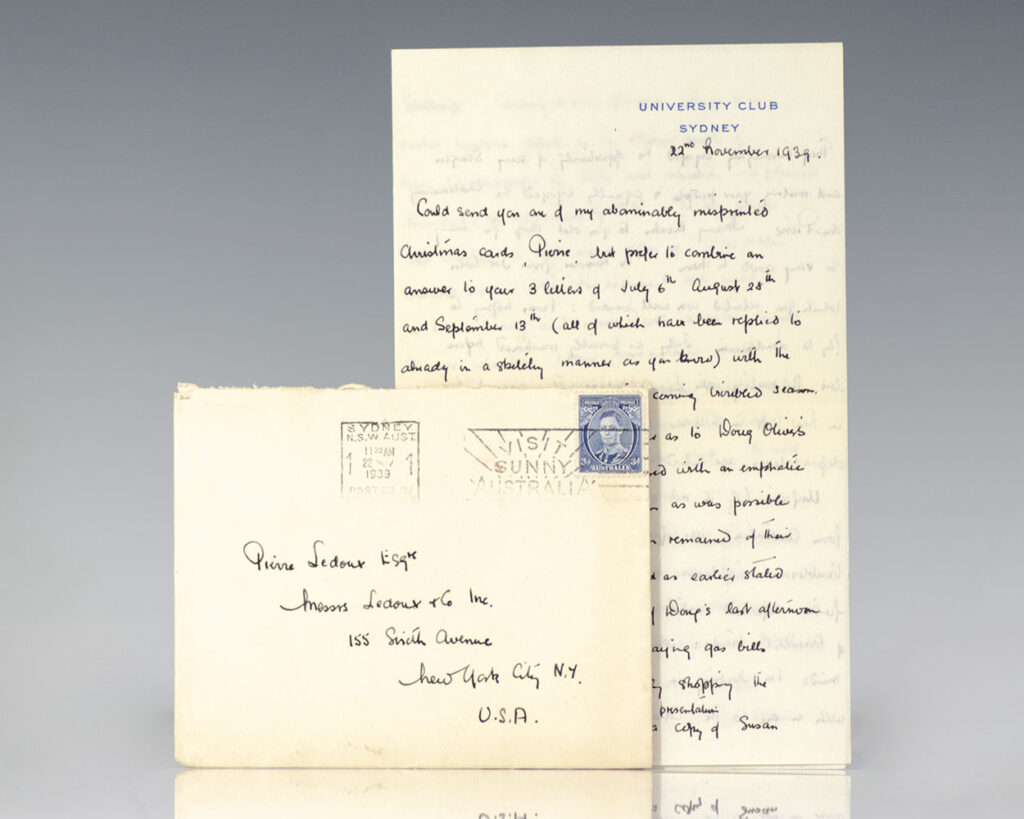 UNIVERSITY CLUB
SYDNEY
22nd November 1939.
Could send you one of my abominably misprinted
Christmas cards, Pierre, but prefer to combine an
answer to your 3 letters of July 6th August 28th
and September 13th (all of which have been replied to
already in a sketchy manner as you know) with the
coming troubled season.
as to Doug Oliver's
with an emphatic
as was possible
remained of their
as earlier stated
Doug's last afternoon
paying gas bills
shopping the
presentation
copy of Susan
SYDNEY
N.S.W. AUST.
1130 AM
22 NOV
1939
1 1
POSTED IN
VISIT
SUNNY
AUSTRALIA
3d 3d
AUSTRALIA
Pierre Ledoux Esqre
Messrs Ledoux & Co Inc.
155 Sixth Avenue
New York City N.Y.
U.S.A.